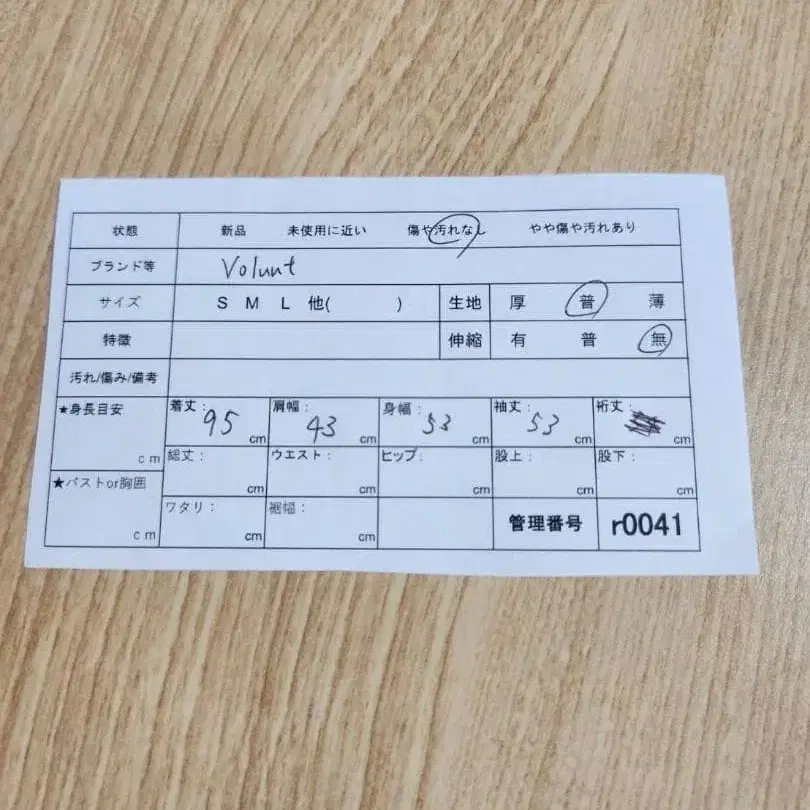 状態 新品 未使用に近い 傷や汚れなし やや傷や汚れあり
ブランド等 Volunt
サイズ S M L 他( ) 生地 厚 普 薄
特徴 伸縮 有 普 無
汚れ/傷み/備考
★身長目安 cm 着丈: 95 cm 肩幅: 43 cm 身幅: 53 cm 袖丈: 53 cm 裄丈: cm
★バストor胸囲 cm 総丈: cm ウエスト: cm ヒップ: cm 股上: cm 股下: cm
ワタリ: cm 裾幅: cm 管理番号 r0041